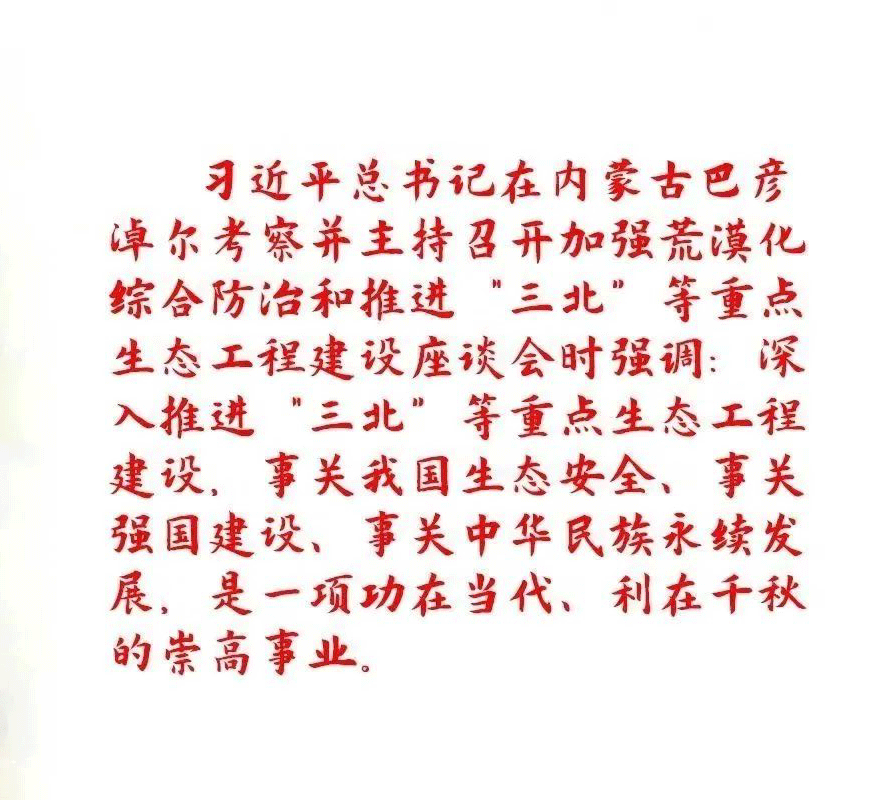 习近平总书记在内蒙古巴彦
淖尔考察并主持召开加强荒漠化
综合防治和推进"三北"等重点
生态工程建设座谈会时强调：深
入推进"三北"等重点生态工程
建设，事关我国生态安全、事关
强国建设、事关中华民族永续发
展，是一项功在当代、利在千秋
的崇高事业。